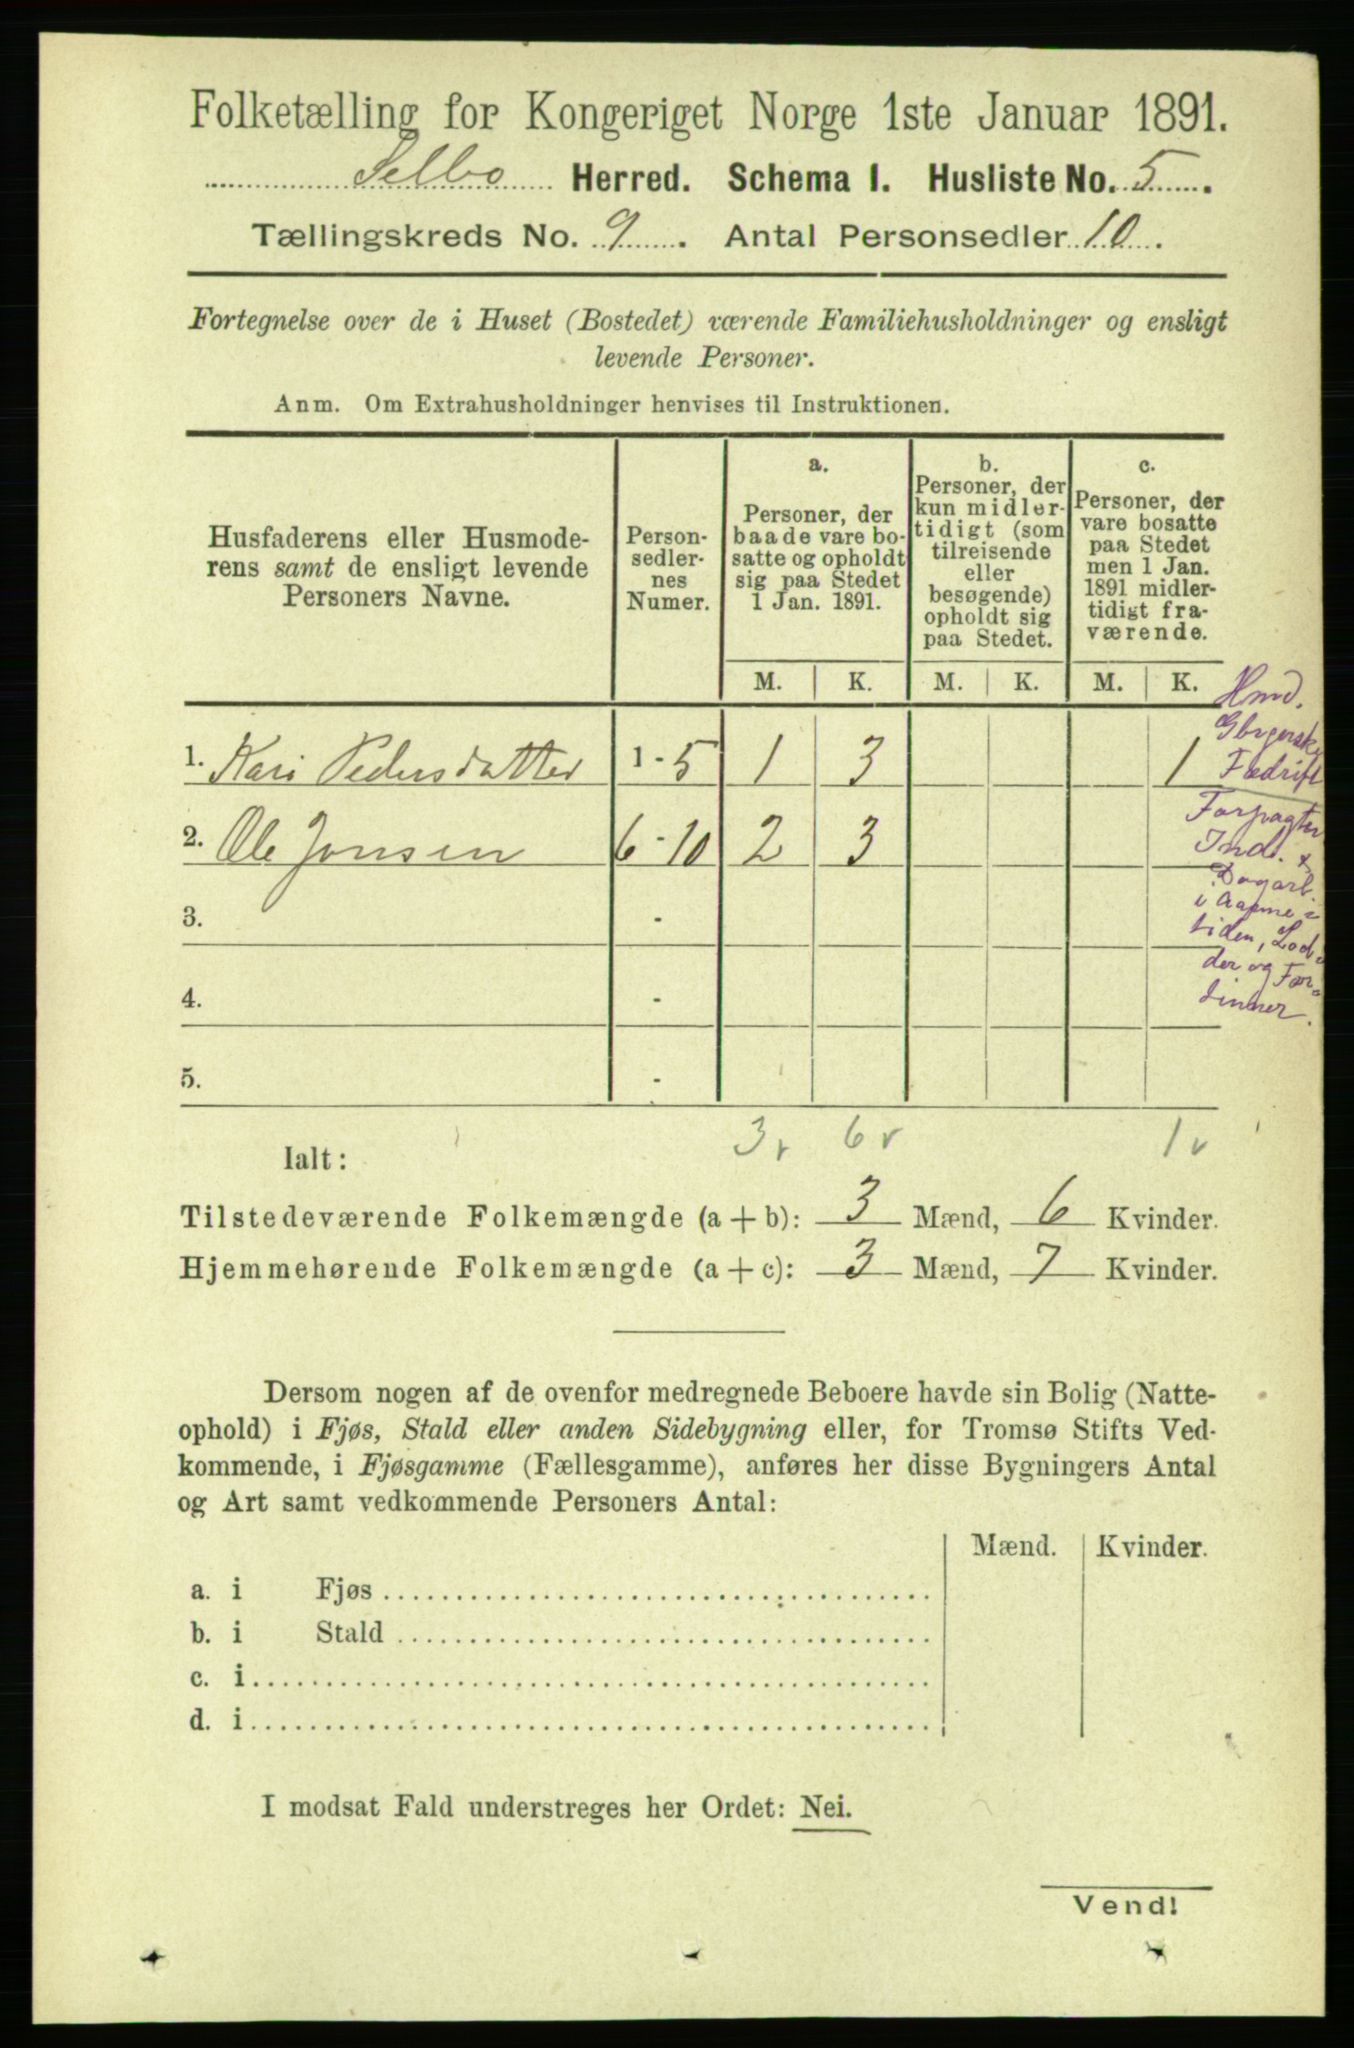 Folketælling for Kongeriget Norge 1ste Januar 1891.
Selbo Herred. Schema I. Husliste No. 5.
Tællingskreds No. 9. Antal Personsedler 10.
Fortegnelse over de i Huset (Bostedet) værende Familiehusholdninger og ensligt
levende Personer.
Anm. Om Extrahusholdninger henvises til Instruktionen.
Husfaderens eller Husmode-
rens samt de ensligt levende
Personers Navne.
Person-
sedler-
nes
Numer.
a.
Personer, der
baade vare bo-
satte og opholdt
sig paa Stedet
1 Jan. 1891.
b.
Personer, der
kun midler-
tidigt (som
tilreisende
eller
besøgende)
opholdt sig
paa Stedet.
c.
Personer, der
vare bosatte
paa Stedet
men 1 Jan.
1891 midler-
tidigt fra-
værende.
M. K. M. K. M. K.
1. Kari Pedersdatter 1-5 1 3 1
2. Ole Jonsen 6-10 2 3
3. -
4. -
5. -
Hmd.
Fædrift
Forpagter
Ind.
Dagarb.
i
tiden, Lod-
der og For-
tinner.
3 6 1
Ialt:
Tilstedeværende Folkemængde (a + b): 3 Mænd, 6 Kvinder.
Hjemmehørende Folkemængde (a + c): 3 Mænd, 7 Kvinder.
Dersom nogen af de ovenfor medregnede Beboere havde sin Bolig (Natte-
ophold) i Fjøs, Stald eller anden Sidebygning eller, for Tromsø Stifts Ved-
kommende, i Fjøsgamme (Fællesgamme), anføres her disse Bygningers Antal
og Art samt vedkommende Personers Antal:
Mænd. Kvinder.
a. i Fjøs
b. i Stald
c. i
d. i
I modsat Fald understreges her Ordet: Nei.
Vend!